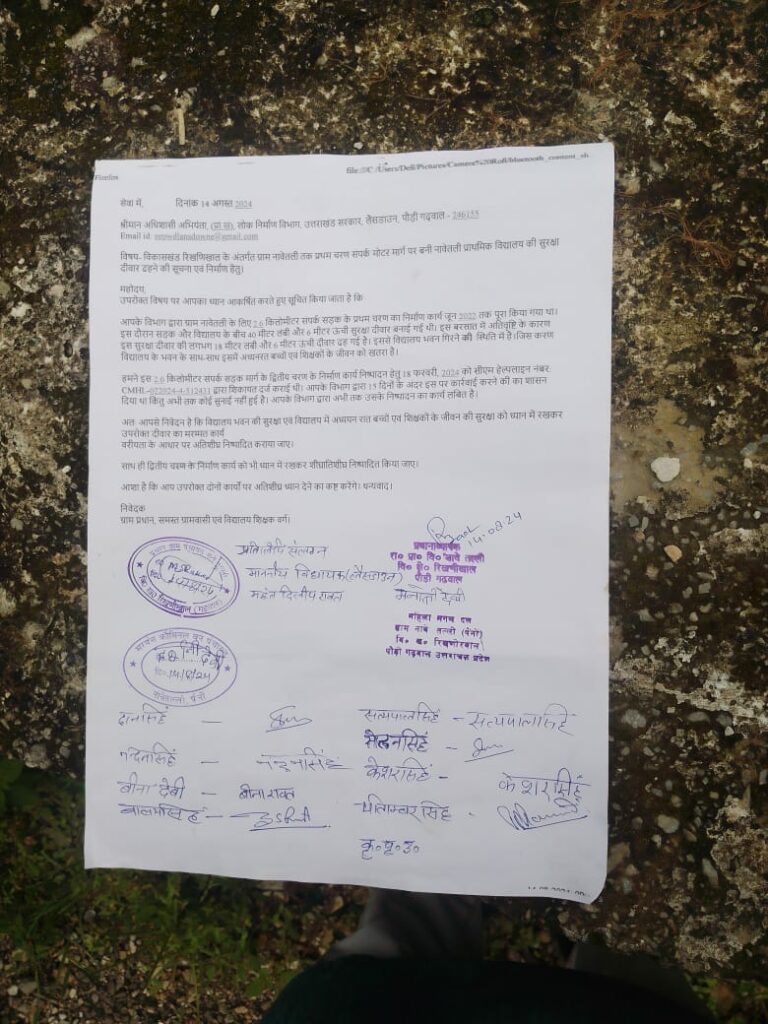 Firefox
file:///C:/Users/Dell/Pictures/Camera%20Roll/bluetooth_content_sh
सेवा में, दिनांक 14 अगस्त 2024
श्रीमान अधिशासी अभियंता, (प्रा ख), लोक निर्माण विभाग, उत्तराखंड सरकार, लैंसडाउन, पौड़ी गढ़वाल - 246155
Email id:
विषय- विकासखंड रिखणिखाल के अंतर्गत ग्राम नावेतली तक प्रथम चरण संपर्क मोटर मार्ग पर बनी नावेतली प्राथमिक विद्यालय की सुरक्षा
दीवार ढहने की सूचना एवं निर्माण हेतु।
महोदय,
उपरोक्त विषय पर आपका ध्यान आकर्षित करते हुए सूचित किया जाता है कि
आपके विभाग द्वारा ग्राम नावेतली के लिए 2.6 किलोमीटर संपर्क सड़क के प्रथम चरण का निर्माण कार्य जून 2022 तक पूरा किया गया था।
इस दौरान सड़क और विद्यालय के बीच 40 मीटर लंबी और 6 मीटर ऊंची सुरक्षा दीवार बनाई गई थी। इस बरसात में अतिवृष्टि के कारण
इस सुरक्षा दीवार की लगभग 18 मीटर लंबी और 6 मीटर ऊंची दीवार ढह गई है। इससे विद्यालय भवन गिरने की स्थिति में है।जिस कारण
विद्यालय के भवन के साथ-साथ इसमें अध्यनरत बच्चों एवं शिक्षकों के जीवन को खतरा है।
हमने इस 2.6 किलोमीटर संपर्क सड़क मार्ग के द्वितीय चरण के निर्माण कार्य निष्पादन हेतु 18 फरवरी, 2024 को सीएम हेल्पलाइन नंबर
CMHL-022024-4-512431 द्वारा शिकायत दर्ज कराई थी। आपके विभाग द्वारा 15 दिनों के अंदर इस पर कार्रवाई करने की का शासन
दिया था किंतु अभी तक कोई सुनाई नहीं हुई है। आपके विभाग द्वारा अभी तक उसके निष्पादन का कार्य लंबित है।
अतः आपसे निवेदन है कि विद्यालय भवन की सुरक्षा एवं विद्यालय में अध्ययन रात बच्चों एवं शिक्षकों के जीवन की सुरक्षा को ध्यान में रखकर
उपरोक्त दीवार का मरम्मत कार्य
वरीयता के आधार पर अतिशीघ्र निष्पादित कराया जाए।
साथ ही द्वितीय चरण के निर्माण कार्य को भी ध्यान में रखकर शीघ्रातिशीघ्र निष्पादित किया जाए।
आशा है कि आप उपरोक्त दोनों कार्यों पर अतिशीघ्र ध्यान देने का कष्ट करेंगे। धन्यवाद।
निवेदक
ग्राम प्रधान, समस्त ग्रामवासी एवं विद्यालय शिक्षक वर्ग।
14.08.24
प्रधानाध्यापक
रा० प्रा० वि० नावे तल्ली
वि० क्षे० रिखणीखाल
पौड़ी गढ़वाल
प्रतिलिपि संलग्न
माननीय विधायक(लैंसडाउन)
महंत दिलीप रावत
मनोती देवी
महिला मंगल दल
ग्राम नावे तल्ली (पैनो)
वि० ख० रिखणीखाल
पौड़ी गढ़वाल उत्तरांचल प्रदेश
दानसिंह –
सत्यपालसिंह – सत्यपालसिंह
नन्दनसिंह –
केशरसिंह – केशरसिंह
बीना देवी – बीना रावत
पीताम्बर सिंह -
कृ०पृ०उ०